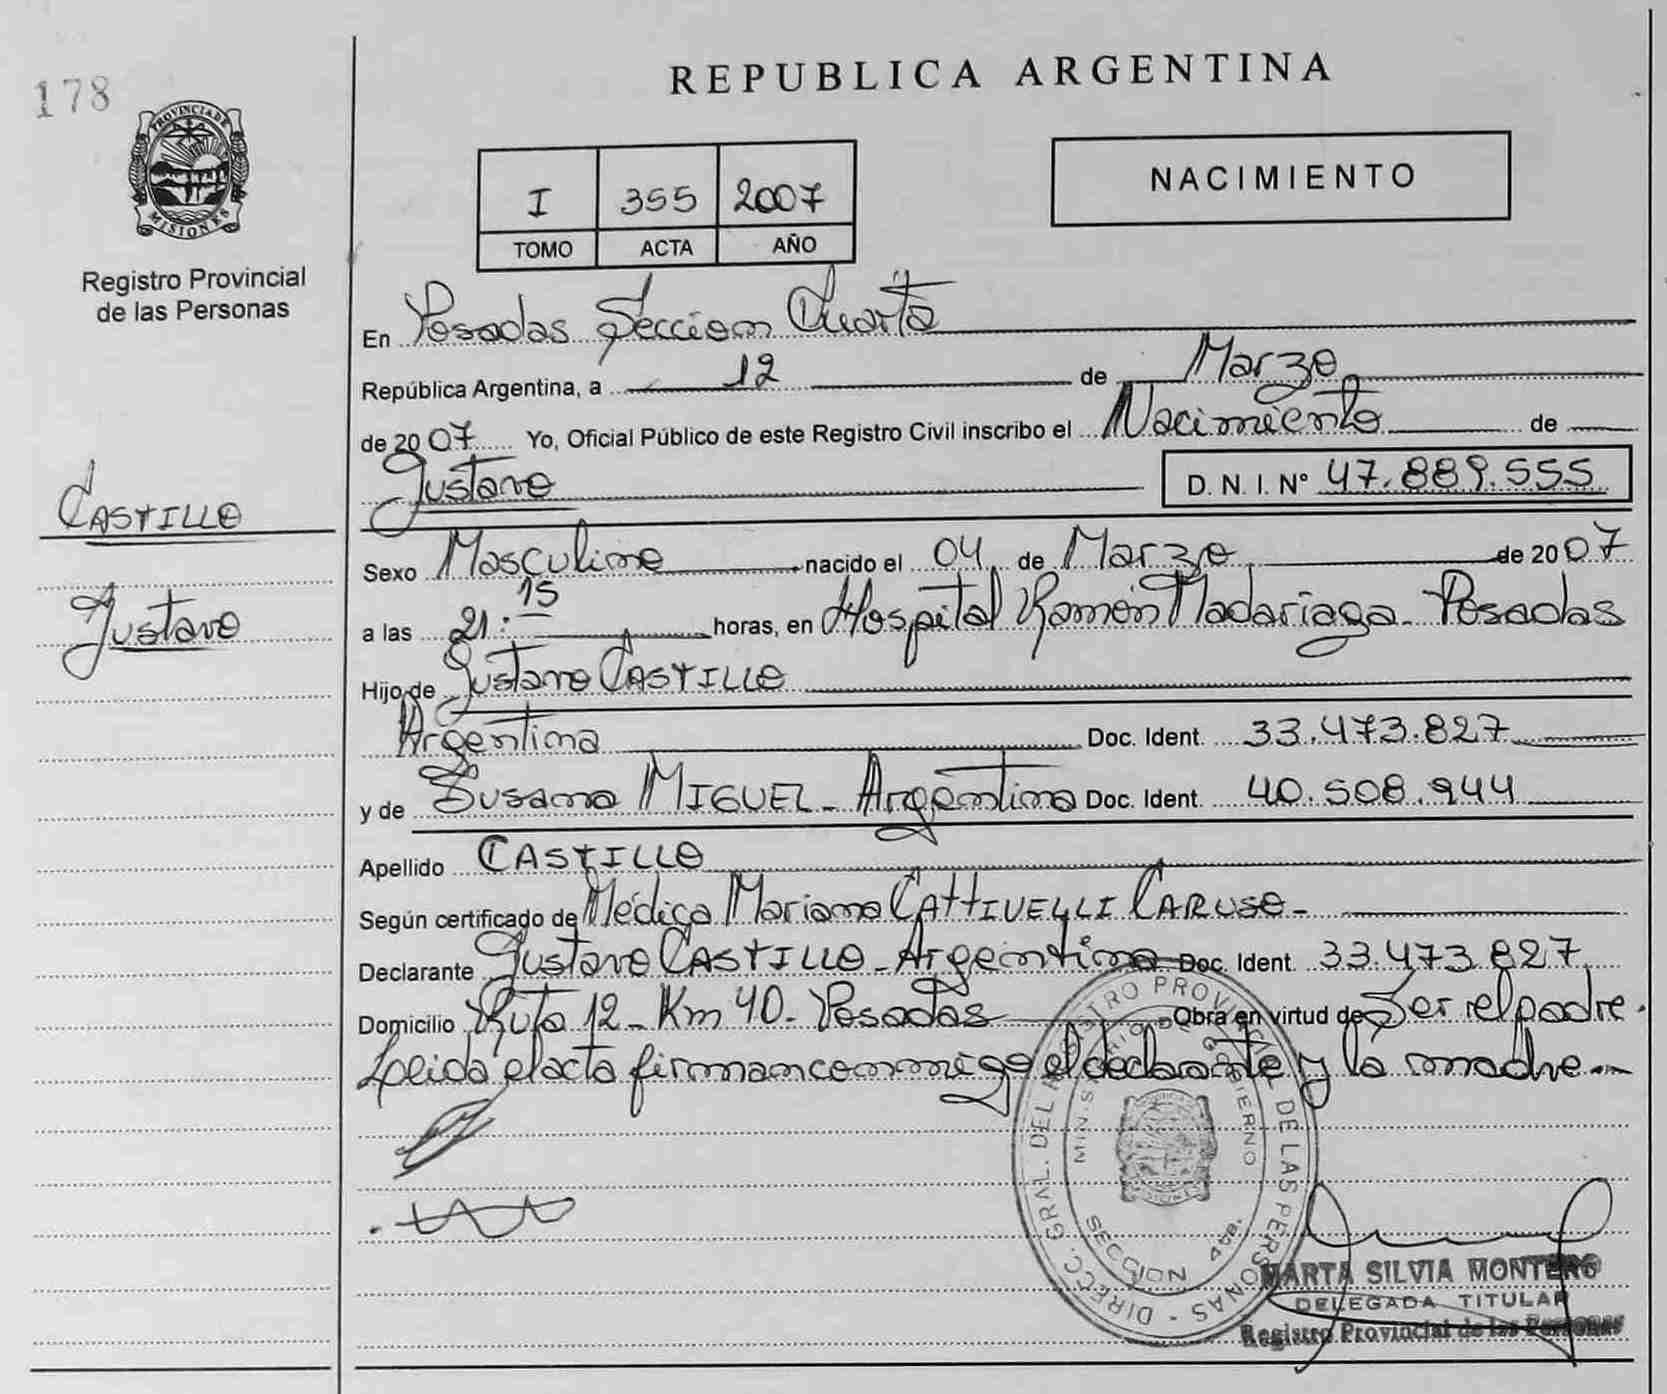 178
REPUBLICA ARGENTINA
PROVINCIA DE
MISIONES
Registro Provincial
de las Personas
I 355 2007
TOMO ACTA AÑO
NACIMIENTO
En Posadas Sección Cuarta
República Argentina, a 12 de Marzo
de 2007 Yo, Oficial Público de este Registro Civil inscribo el Nacimiento de
Gustavo D. N. I. N° 47.889.555
CASTILLO
Gustavo
Sexo Masculino nacido el 04 de Marzo de 2007
a las 21:15 horas, en Hospital Ramón Madariaga - Posadas
Hijo de Gustavo CASTILLO
Argentino Doc. Ident. 33.473.827
y de Susana MIGUEL - Argentina Doc. Ident. 40.508.944
Apellido CASTILLO
Según certificado de Médica Mariana CATTIVELLI CARUSO -
Declarante Gustavo CASTILLO - Argentino Doc. Ident. 33.473.827
Domicilio Ruta 12 - Km 40 - Posadas Obra en virtud de Ser el padre.
Leida el acta firman conmigo el declarante y la madre
DIRECC. GRAL. DEL REGISTRO PROVINCIAL DE LAS PERSONAS
MINISTERIO DE GOBIERNO
SECCION 4ta.
MARTA SILVIA MONTERO
DELEGADA TITULAR
Registro Provincial de las Personas